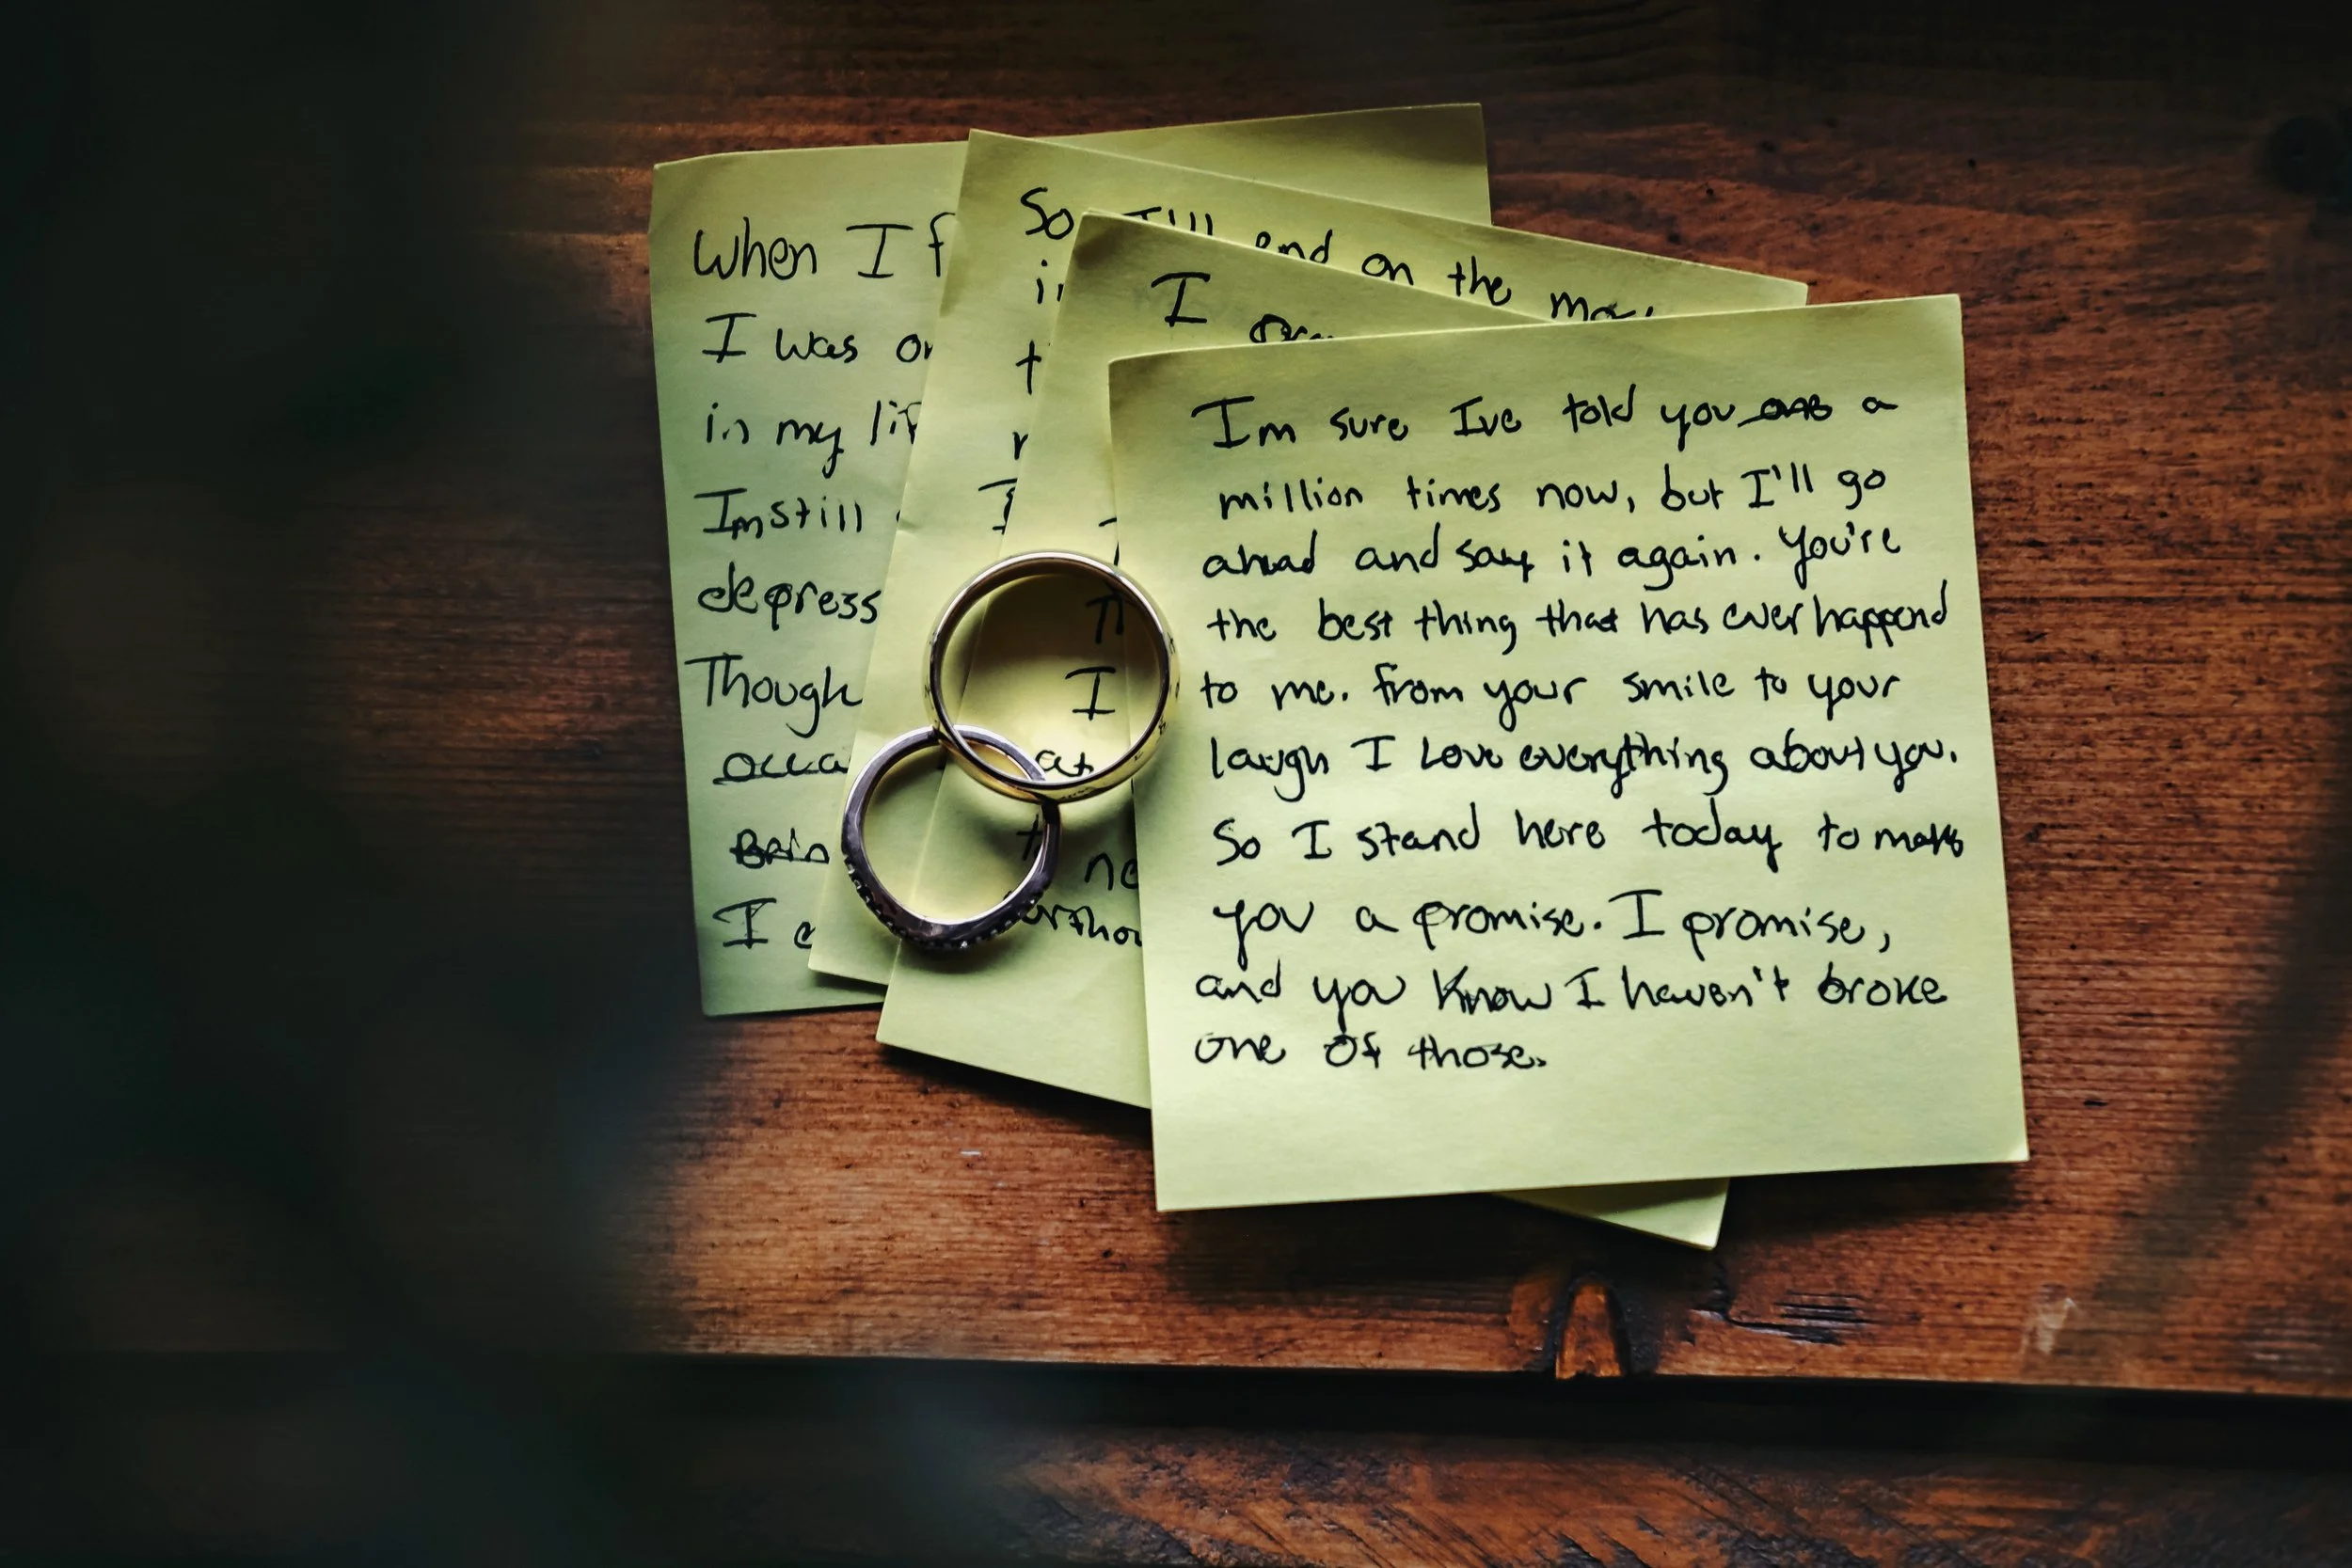 When I f
I was
in my
Im still
depress
Though
occa
I
So I'll end on the
I
I
at
I
Im sure Ive told you a
million times now, but I'll go
ahead and say it again. You're
the best thing that has ever happend
to me. from your smile to your
laugh I Love everything about you.
So I stand here today to make
you a promise. I promise,
and you know I haven't broke
one of those.